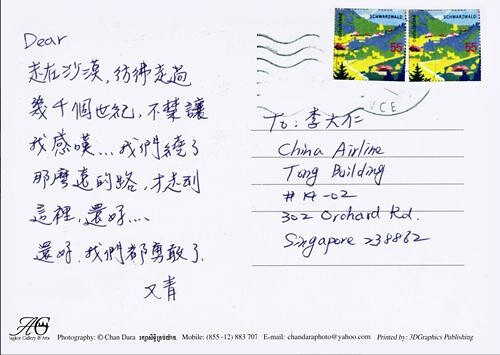 Dear
走在沙漠，彷彿走過
幾千個世紀，不禁讓
我感嘆...我們繞了
那麼遠的路，才走到
這裡，還好....
還好，我們都勇敢了.
又青
SCHWARZWALD
55
SCHWARZWALD
55
To: 李大仁
China Airline
Tong Building
#14-02
302 Orchard Rd.
Singapore 238862
AG
Photography: © Chan Dara
Mobile: (855-12) 883 707
E-mail: chandaraphoto@yahoo.com
Printed by: 3DGraphics Publishing